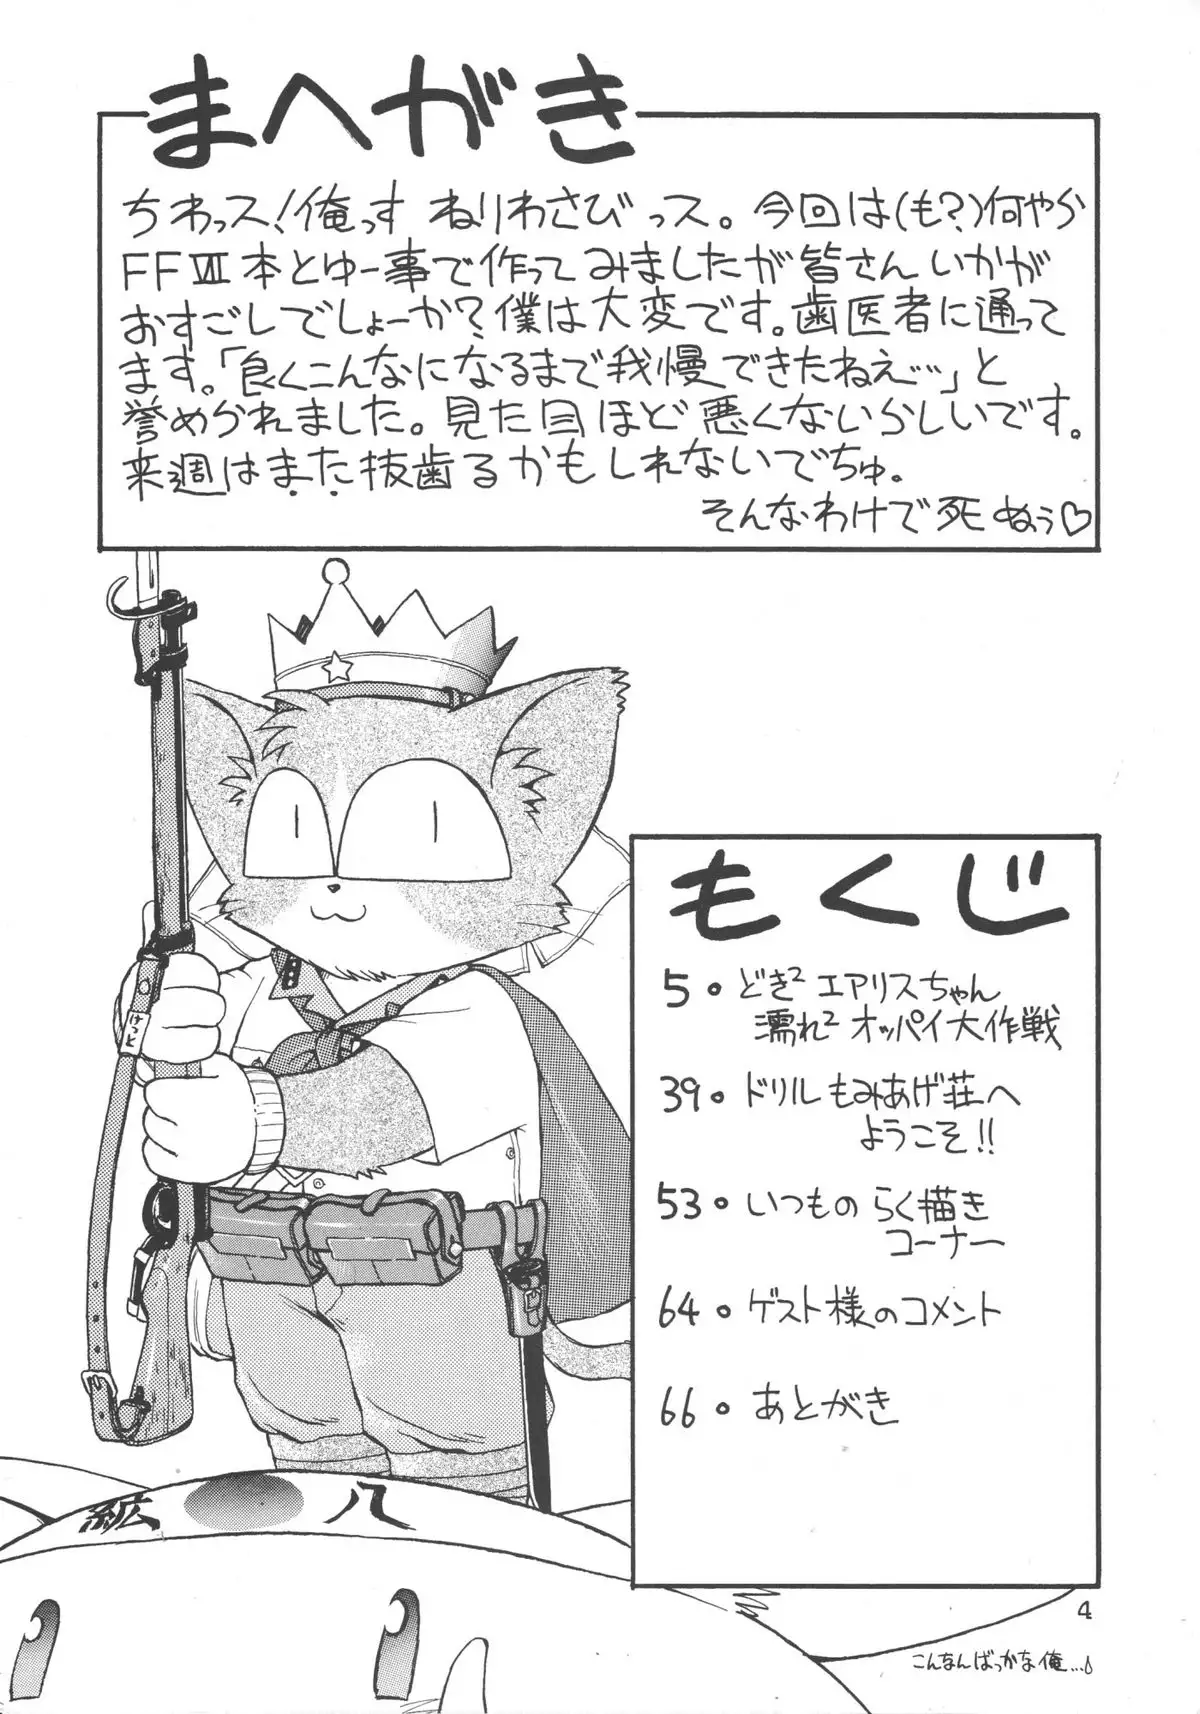 まへがき
ちわっス!俺っす ねりわさびっス。今回は(も?)何やら
FFⅦ本とゆー事で作ってみましたが皆さんいかが
おすごしでしょーか?僕は大変です。歯医者に通って
ます。「良くこんなになるまで我慢できたねえ…」と
誉められました。見た目ほど悪くないらしいです。
来週はまた抜歯るかもしれないでちゅ。
そんなわけで死ぬぅ♡
もくじ
5・どき²エアリスちゃん
濡れ²オッパイ大作戦
39・ドリルもみあげ荘へ
ようこそ!!
53・いつものらく描き
コーナー
64・ゲスト様のコメント
66・あとがき
けっと
紘 八
4
こんなんばっかな俺…♪